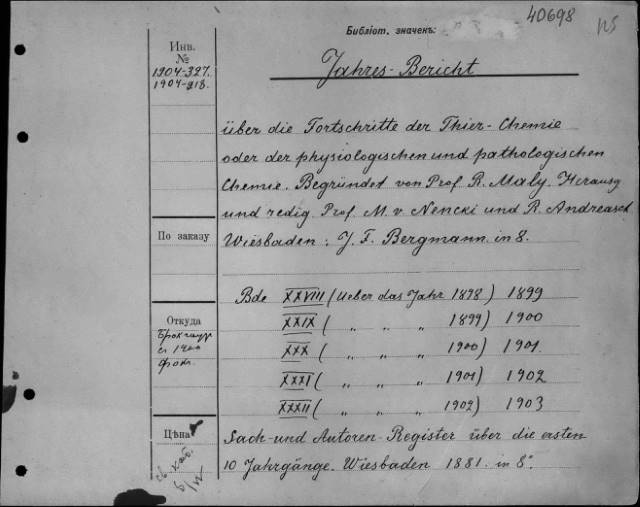 40698
Библіот. значекъ:
Инв.
№
1904-327.
1904-218.
Jahres-Bericht
über die Fortschritte der Thier-Chemie
oder der physiologischen und pathologischen
Chemie. Begründet von Prof. R. Maly. Herausg
und redig. Prof. M. v. Nencki und R. Andreasch
По заказу
Wiesbaden: J. F. Bergmann. in 8.
Bde XXVIII (Ueber das Jahr 1898) 1899
XXIX ( " " " 1899) 1900
Откуда
XXX ( " " " 1900) 1901.
XXXI ( " " " 1901) 1902
XXXII ( " " " 1902) 1903
Цѣна
Sach- und Autoren-Register über die ersten
10 Jahrgänge. Wiesbaden 1881. in 8°.